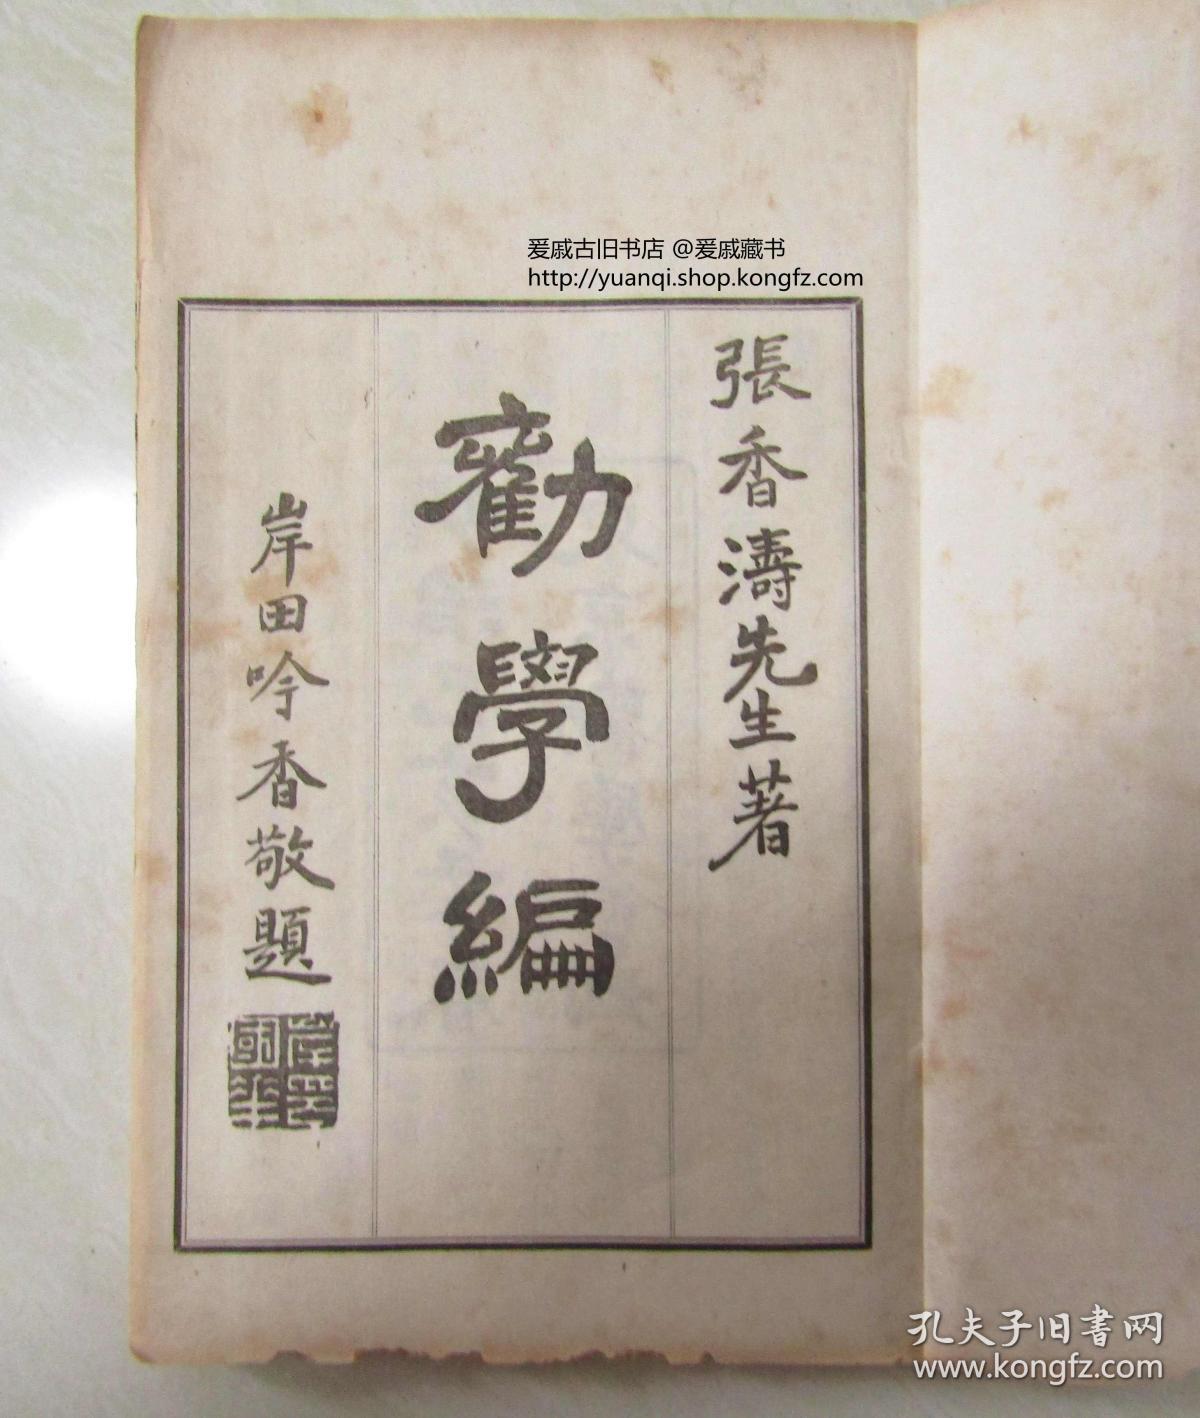 爰戚古旧书店 @爰戚藏书
http://yuanqi.shop.kongfz.com
張香濤先生著
勸學編
岸田吟香敬題
孔夫子旧書网
www.kongfz.com